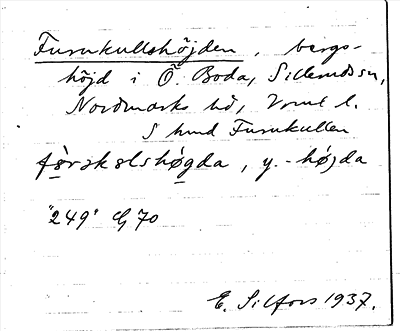 Furukullshöjden, bergs-
höjd i Ö. Boda, Sillerudssn,
Nordmarks hd, Vrml l.
S hund Furukullen
fɵ̀rəkəlshøgda, y.-højda
"249" G 70
E. Silfors 1937.